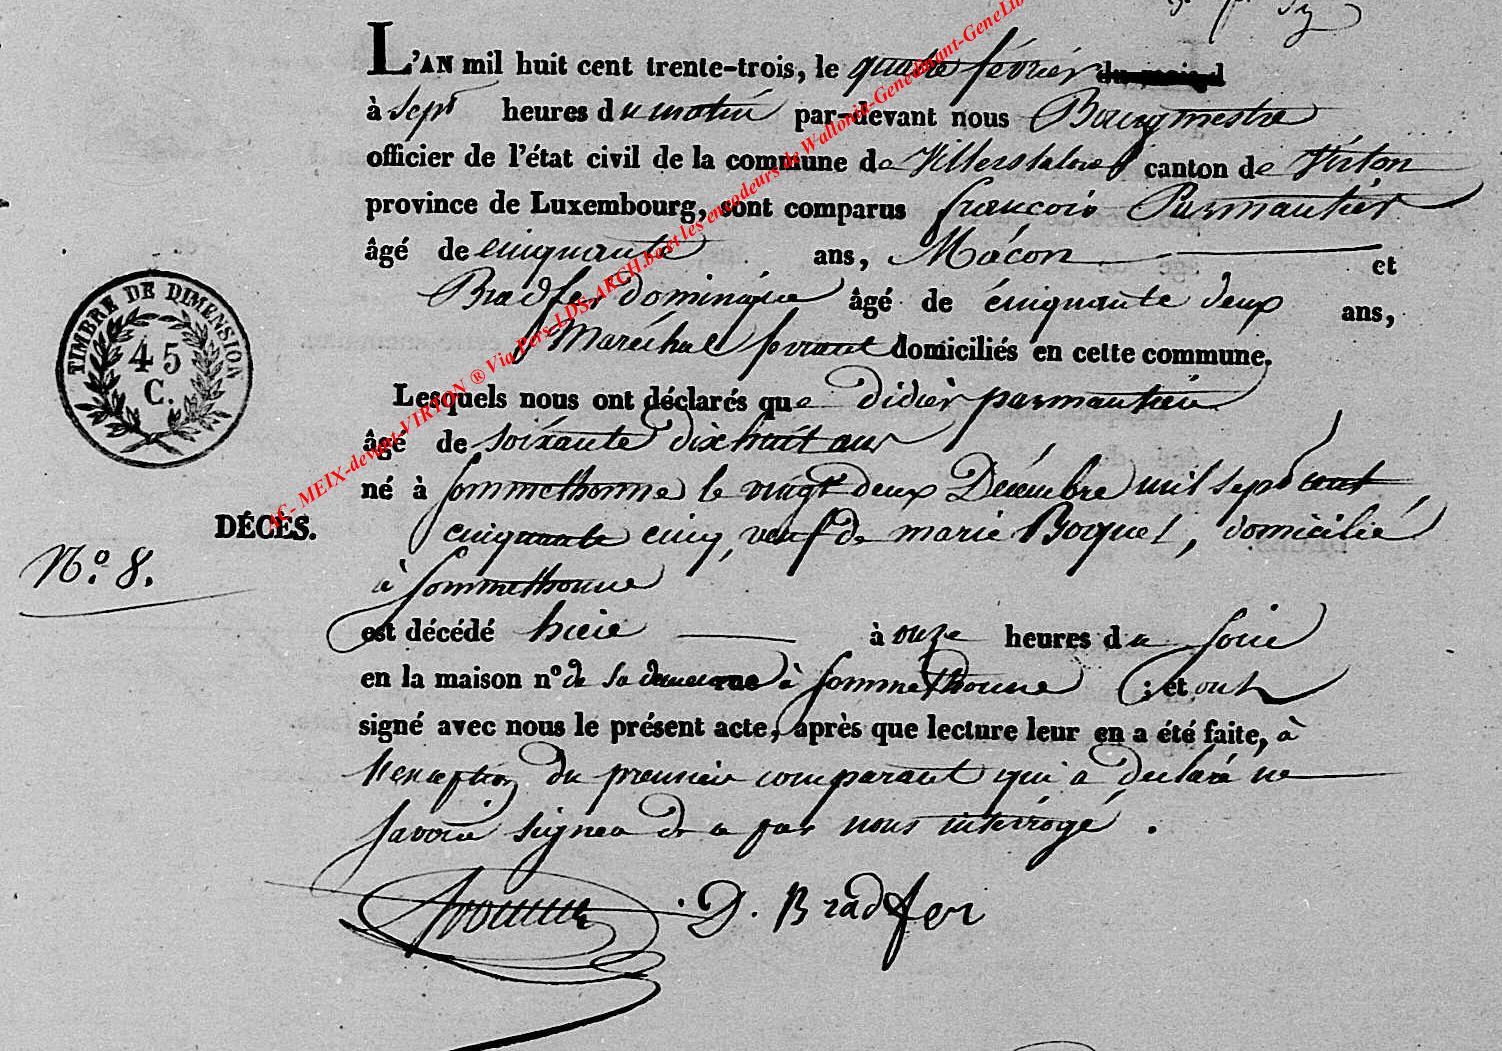 L'AN mil huit cent trente-trois, le quatre février
à sept heures du matin par-devant nous Bourgmestre
officier de l'état civil de la commune de Villers laloue canton de Virton
province de Luxembourg, sont comparus françois Parmantier
âgé de cinquante ans, Macon et
Bradfer dominique âgé de cinquante deux ans,
Maréchal ferrant domiciliés en cette commune.
Lesquels nous ont déclarés que didier parmantier
âgé de soixante dix huit ans
né à Sommethonne le vingt deux Décembre mil sept cent
cinquante cinq, veuf de marie Boquet, domicilié
à Sommethonne
est décédé hier à onze heures du soir
en la maison n° de sa demeure à Sommethonne ; et ont
signé avec nous le présent acte, après que lecture leur en a été faite, à
l'exception du premier comparant qui a declaré ne
savoir signer de a par nous intérrogé.
D. Bradfer
TIMBRE DE DIMENSION
45
C.
DÉCÈS.
N.° 8.
AC- MEIX-devant-VIRTON ® Via Pers-LDS-ARCH.be et les encodeurs de Wallonia-Genedinant-GeneLib